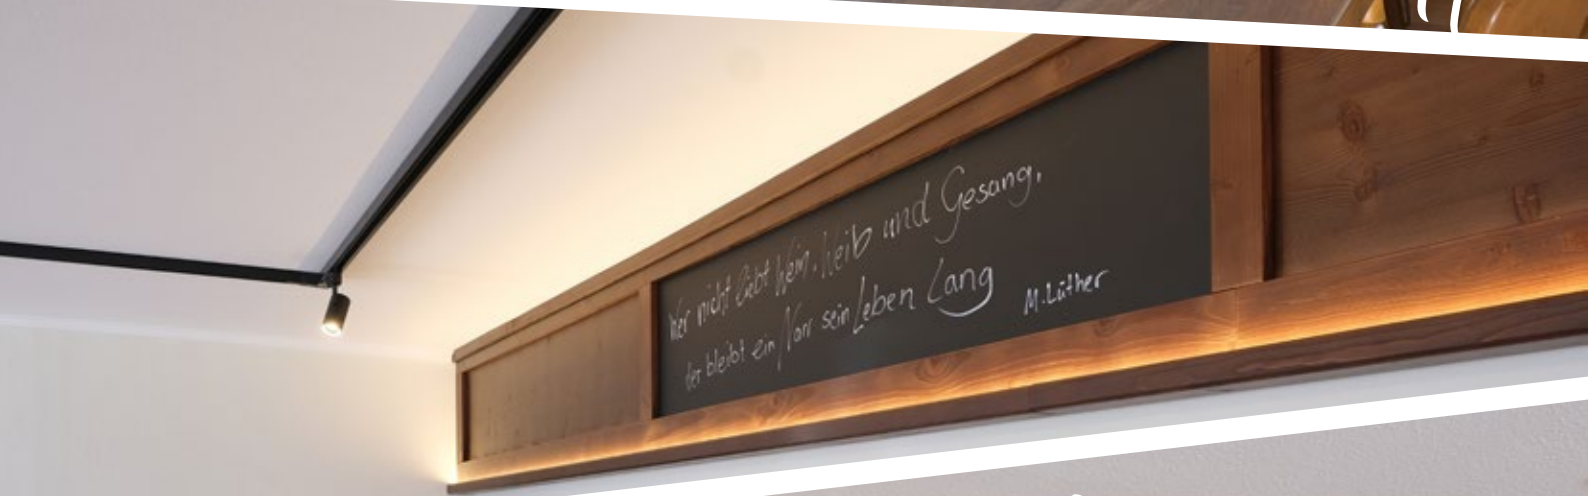 Wer nicht liebt Wein, Weib und Gesang,
der bleibt ein Narr sein Leben Lang
M. Luther